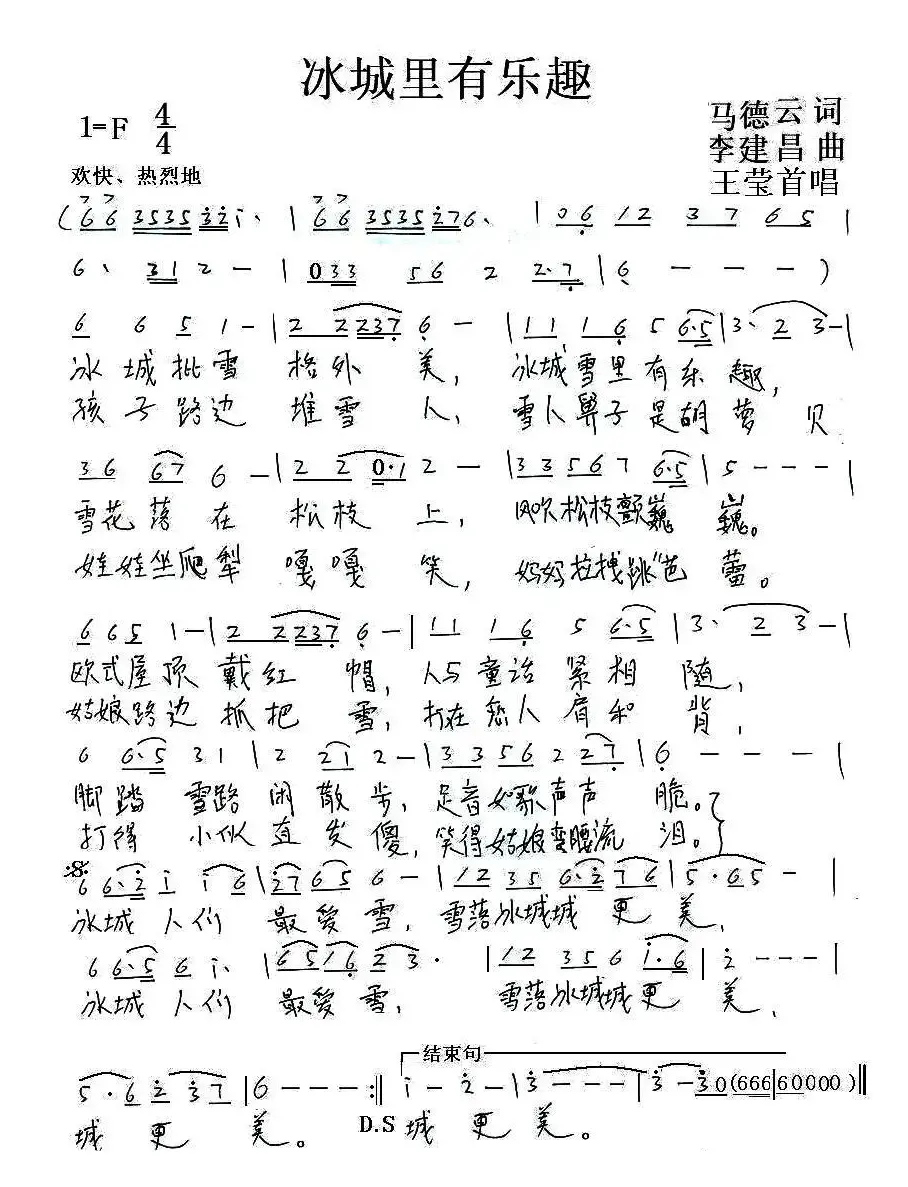 冰城里有乐趣
1=F 4/4
马德云词
李建昌曲
欢快、热烈地
王莹首唱
(66 3535 32i、 | 66 3535 276、 | 06 12 37 65 |
6、 31 2 - | 033 56 2 2·7 | 6 - - - )
6 6 5 1 - | 2 2237 6 - | 11 16 5 6·5 | 3· 2 3 - |
冰城批雪格外美，冰城雪里有乐趣，
孩子路边堆雪人，雪人鼻子是胡萝贝
36 67 6 - | 2 2 0·1 2 - | 33567 6·5 | 5 - - - |
雪花落在松枝上，风吹松枝颤巍巍。
娃娃坐爬犁嘎嘎笑，妈妈拉拽跳“芭蕾。
6 65 1 - | 2 2237 6 - | 11 16 5 6·5 | 3· 2 3 - |
欧式屋顶戴红帽，人与童话紧相随，
姑娘路边抓把雪，打在恋人肩和背，
6 6·5 31 | 2 21 2 - | 3356 2 27 | 6 - - - |
脚踏雪路闲散步，足音如歌声声脆。
打得小伙直发傻，笑得姑娘弯腰流泪。
6 6·2 i i6 | 2765 6 - | 12 35 6·2 76 | 5·65 - |
冰城人们最爱雪，雪落冰城城更美，
6 6·5 6 i、 | 65 16 2 3· | 12 356 i·6 | 2 - - - |
冰城人们最爱雪，雪落冰城城更美，
结束句
5·6 2 37 | 6 - - - :‖ i - 2 - | 3 - - - | 3 - 30(666|60000)‖
城更美。D.S城更美。